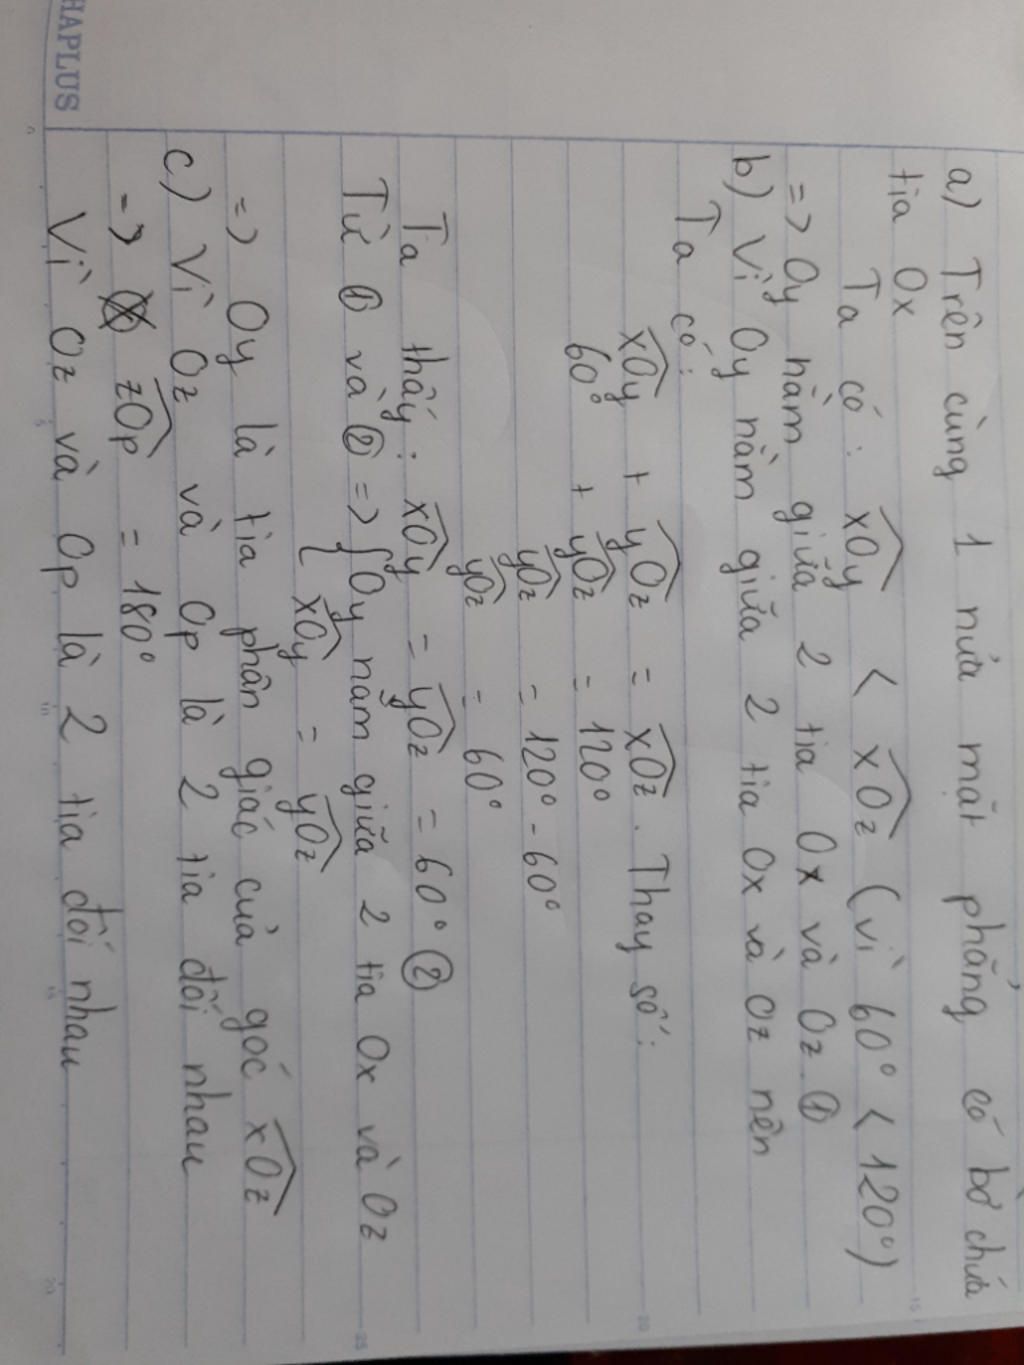 a) Trên cùng 1 nửa mặt phẳng có bờ chứa
tia Ox
Ta có : xOy < xOz (vì 60° < 120°)
=> Oy nằm giữa 2 tia Ox và Oz. ①
b) Vì Oy nằm giữa 2 tia Ox và Oz nên
Ta có :
xOy + yOz = xOz. Thay số :
60° + yOz = 120°
yOz = 120° - 60°
yOz = 60°
Ta thấy : xOy = yOz = 60° ②
Từ ① và ② => { Oy nằm giữa 2 tia Ox và Oz
xOy = yOz
=> Oy là tia phân giác của góc xOz
c) Vì Oz và Op là 2 tia đối nhau
=> zOp = 180°
Vì Oz và Op là 2 tia đối nhau
HAPLUS
0
5
10
15
20
15
20
25